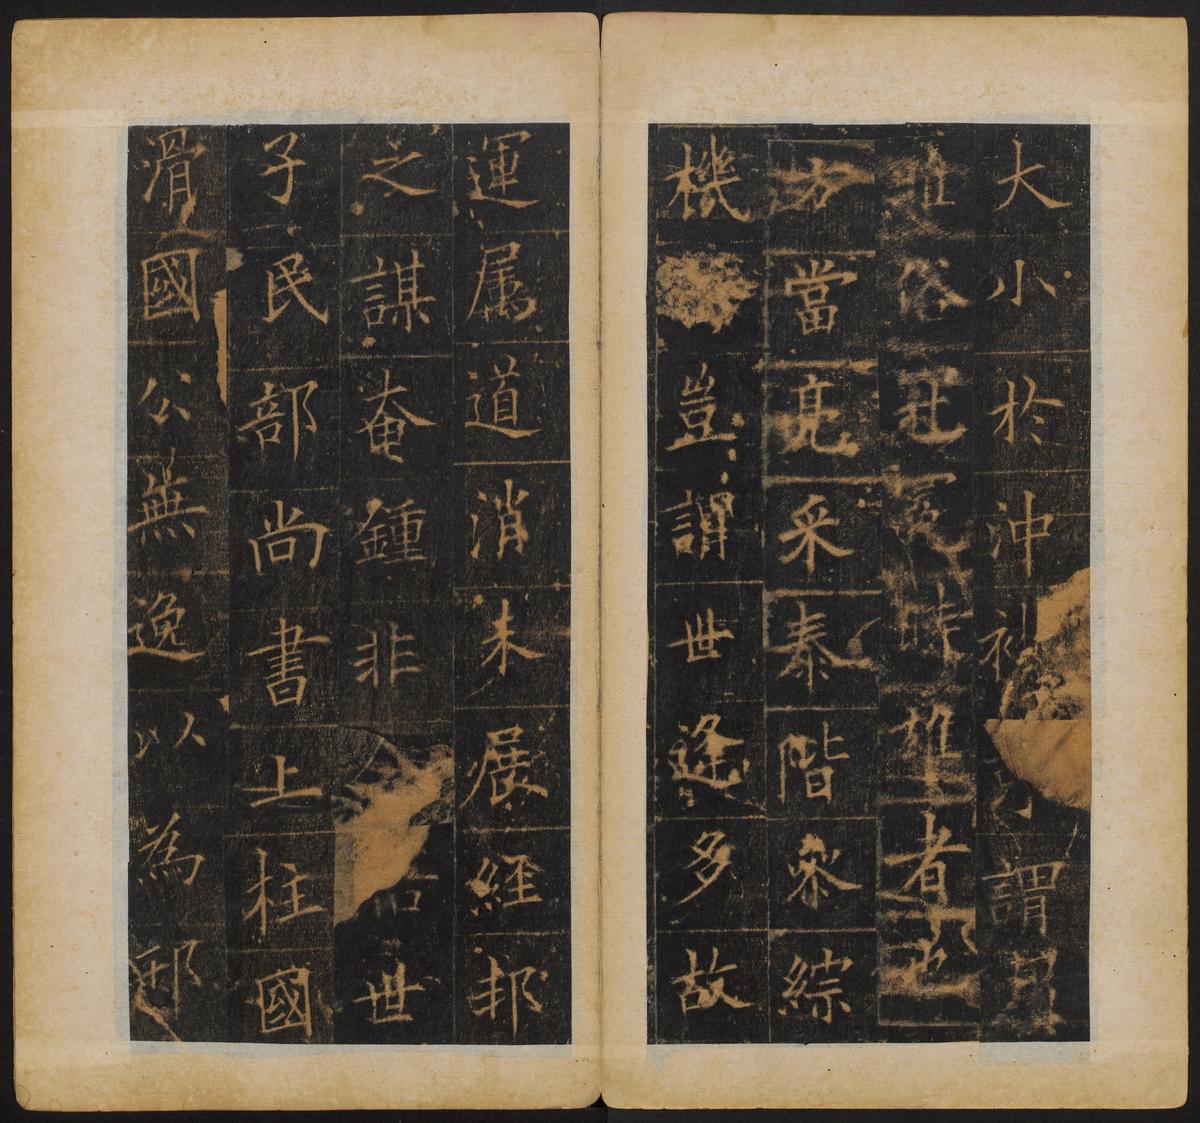 大小於沖謂
雅俗時雄者也
方當亮采泰階參綜
機豈謂世逢多故
運属道消未展經邦
之謀奄鍾非世
子民部尚書上柱國
滑國公無逸以為邢